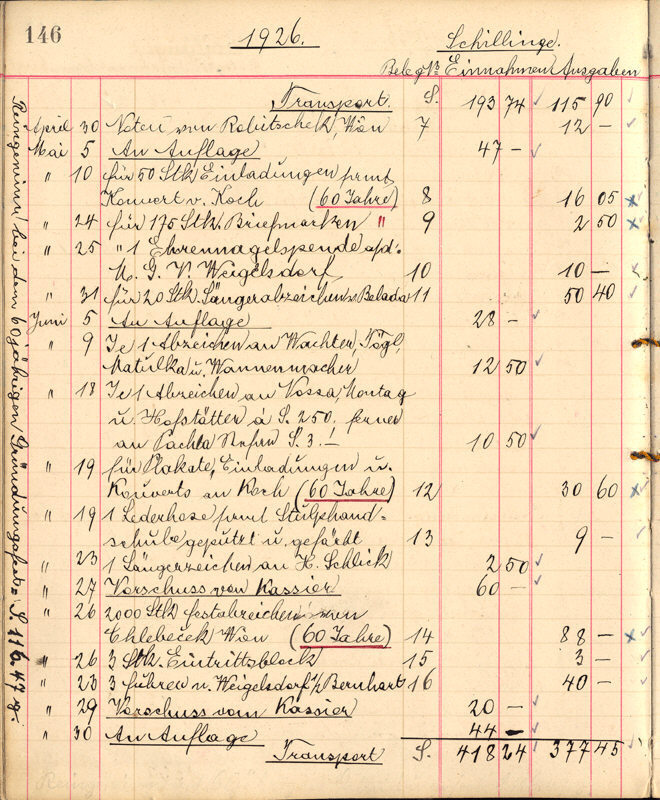 146
1926.
Schillinge.
Beleg № Einnahmen Ausgaben
Transport. S. 193 74 115 90
April 30 Noten von Robitschek, Wien 7 12 —
Mai 5 An Auflage 47 —
" 10 für 50 Stk Einladungen samt
Kouvert v. Koch (60 Jahre) 8 16 05
" 24 für 175 Stk. Briefmarken " 9 2 50
" 25 " 1 Ehrennagelspende a/d.
M. G. V. Weigelsdorf 10 10 —
" 31 für 20 Stk. Sängerabzeichen v. Belada 11 50 40
Juni 5 An Auflage 28 —
" 9 Je 1 Abzeichen an Wachter, Vögl,
Matulka u. Wannenmacher 12 50
" 18 Je 1 Abzeichen an Vossa, Montag
u. Hofstätter á S. 2 50. ferner
an Pachta S. 3.— 10 50
" 19 für Plakate, Einladungen u.
Kouverts an Koch (60 Jahre) 12 30 60
" 19 1 Lederhose samt Stulphand=
schuhe geputzt u. gefärbt 13 9 —
" 23 1 Sängerzeichen an H. Schlick 2 50
" 27 Vorschuss von Kassier 60 —
" 26 2000 Stk festabzeichen von
Chlebeček Wien (60 Jahre) 14 88 —
" 26 3 Stk. Eintrittsblock 15 3 —
" 23 3 fuhren n. Weigelsdorf Bernhart 16 40 —
" 29 Vorschuss vom Kassier 20 —
" 30 An Auflage 44 —
Transport S. 418 24 377 45
Reingewinn bei dem 60 jährigen Gründungsfest= S. 116. 47 g.